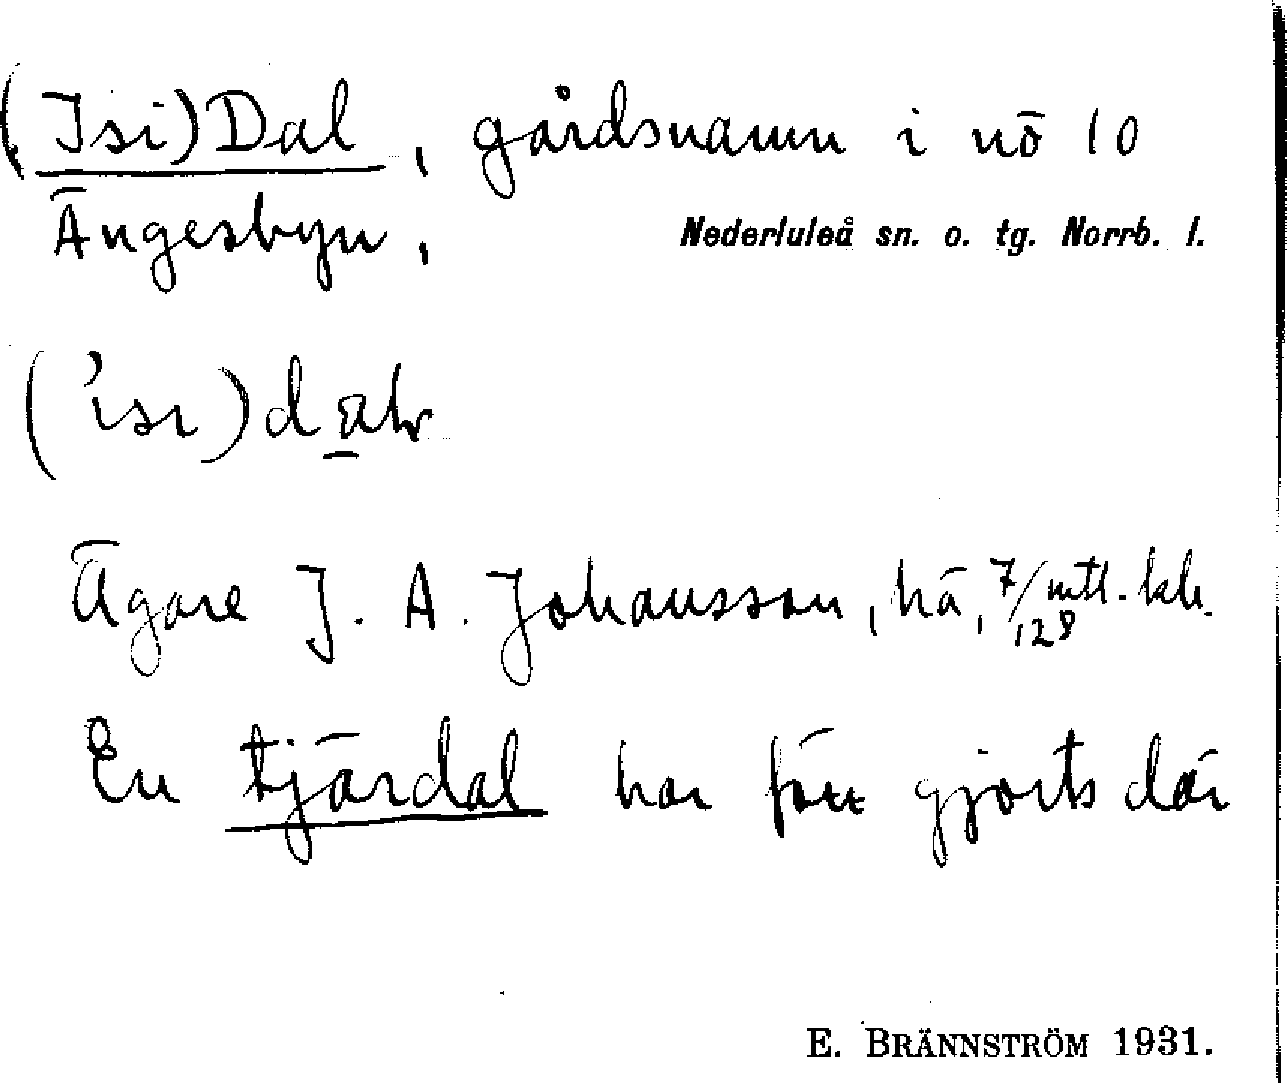 (Isi)Dal, gårdsnamn i nö 10
Ängesbyn, Nederluleå sn. o. tg. Norrb. l.
('isi)dalr
Ägare J. A. Johansson, hä, 7/128 mtl. kr.
En tjärdal har förr gjorts där
E. BRÄNNSTRÖM 1931.